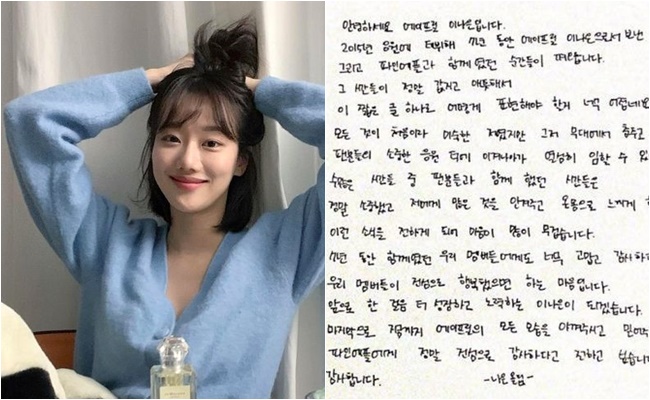 안녕하세요 에이프릴 이나은입니다.
2015년 응원에 더위해 7년 동안 에이프릴 이나은으로서 보낸
그리고 파인에플과 함께 했던 순간들이 떠오릅니다.
그 시간들이 정말 값지고 애틋해서
이 짧은 글 하나로 어떻게 표현해야 할지 너무 어렵네요
모든 것이 처음이라 미숙한 저였지만 그저 무대에서 춤추고
팬분들의 소중한 응원 덕에 이겨나가 열심히 임할 수 있
수많은 시간들 중 팬분들과 함께 했던 시간들은
정말 소중했고 저에게 많은 것을 안겨주고 온몸으로 느끼게 하
이런 소식을 전하게 되어 마음이 많이 무겁습니다.
7년 동안 함께했던 우리 멤버들에게도 너무 고맙고 감사하
우리 멤버들이 진심으로 행복했으면 하는 마음입니다.
앞으로 한 걸음 더 성장하고 노력하는 이나은이 되겠습니다.
마지막으로 지금까지 에이프릴의 모든 모습을 아껴주시고 믿어
파인에플에게 정말 진심으로 감사하다고 전하고 싶습니다
감사합니다. -나은 올림-